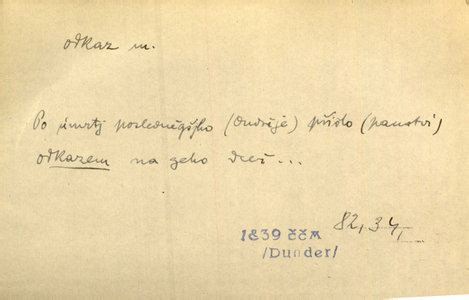 odkaz m.
Po úmrtj posledněgssjho (Ondřeje) přišlo (panství)
odkazem na geho dceř...
82, 34,
1839 ČČM
/Dunder/